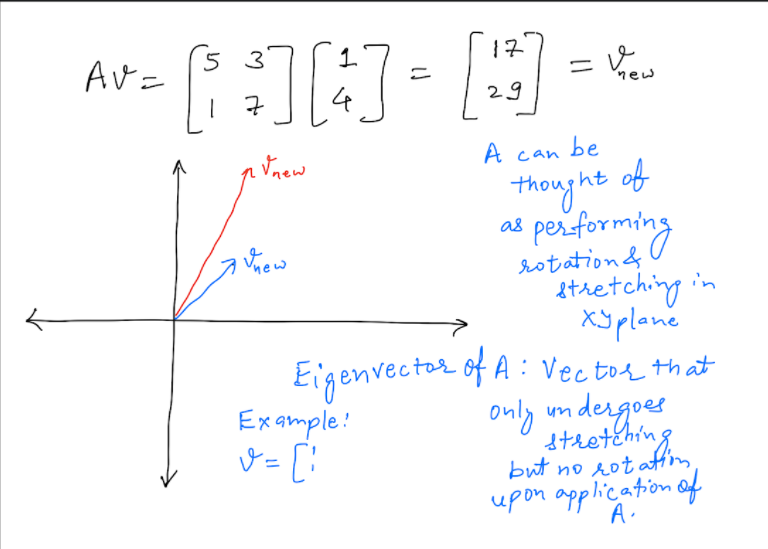 Av = [5 3 1 7] [1 4] = [17 29] = v_new
v_new
v_new
A can be
thought of
as performing
rotation &
stretching in
XY plane
Eigenvector of A : Vector that
only undergoes
stretching
but no rotation
upon application of
A.
Example:
v = [1